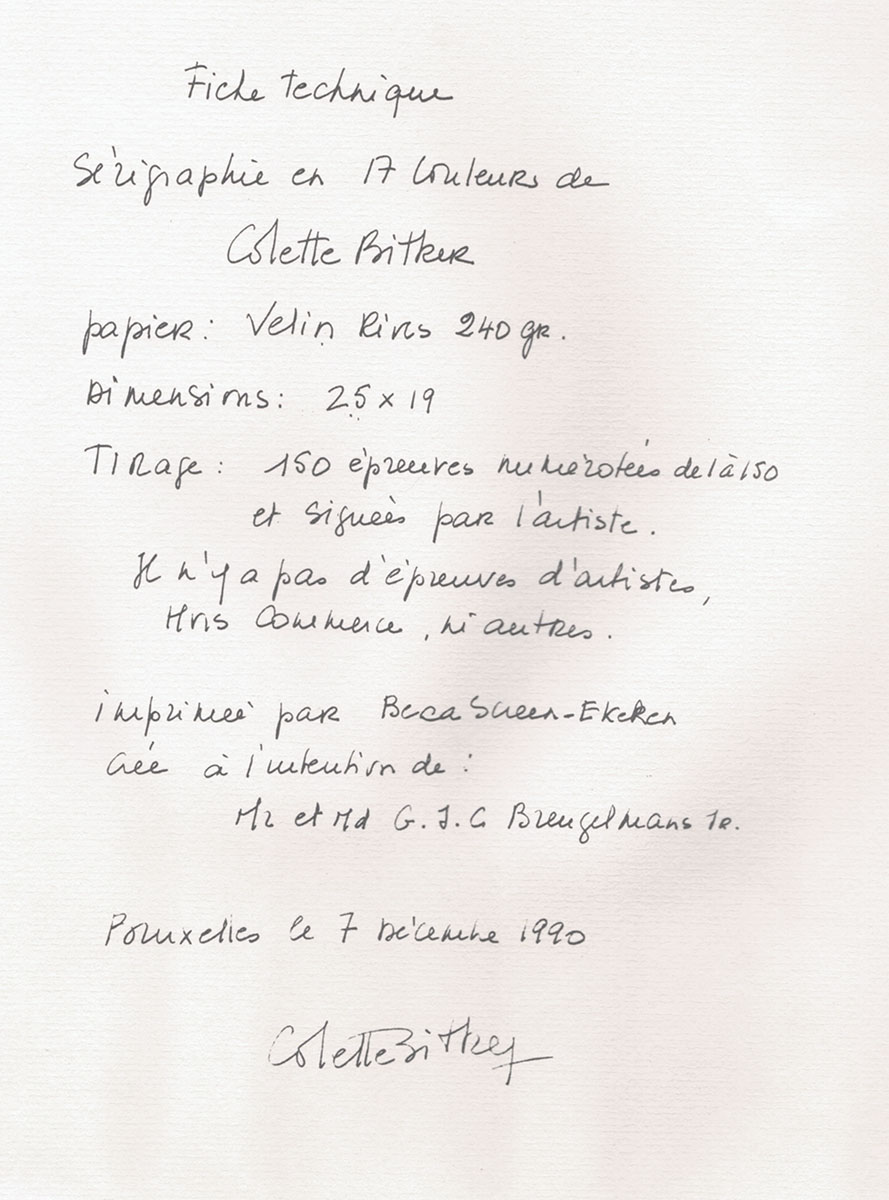 Fiche technique
Sérigraphie en 17 Couleurs de
Colette Bitker
papier: Velin Rives 240 gr.
Dimensions: 25 x 19
Tirage: 150 épreuves numérotées de 1 à 150
et signées par l'artiste.
Il n'y a pas d'épreuves d'artistes,
Hors Commerce, ni autres.
imprimée par Beca Screen-Ekeren
Créé à l'intention de:
Mr et Md G.J.C Breugelmans Jr.
Bruxelles le 7 Décembre 1990
Colette Bitker